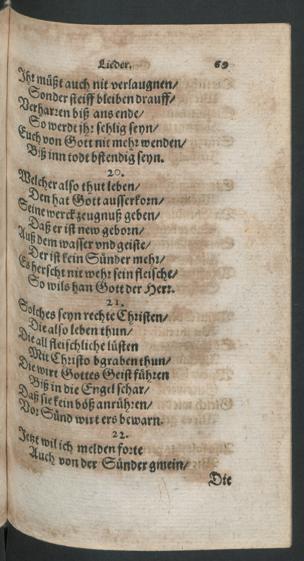 Lieder. 69
Jhr müßt auch nit verlaugnen/
Sonder steiff bleiben drauff/
Verharren biß ans ende/
So werdt jhr sehlig seyn/
Euch von Gott nit mehr wenden/
Biß inn todt bstendig seyn.
20.
Welcher also thut leben/
Den hat Gott ausserkorn/
Seine werck zeugnuß geben/
Daß er ist new geborn/
Auß dem wasser vnd geiste/
Der ist kein Sünder mehr/
Es herscht nit mehr sein fleische/
So wils han Gott der Herr.
21.
Solches seyn rechte Christen/
Die also leben thun/
Die all fleischliche lüsten
Mit Christo bgraben thun/
Die wirt Gottes Geist führen
Biß in die Engel schar/
Daß sie kein böß anrühren/
Vor Sünd wirt ers bewarn.
22.
Jetzt wil ich melden forte
Auch von der Sünder gmein/
Die